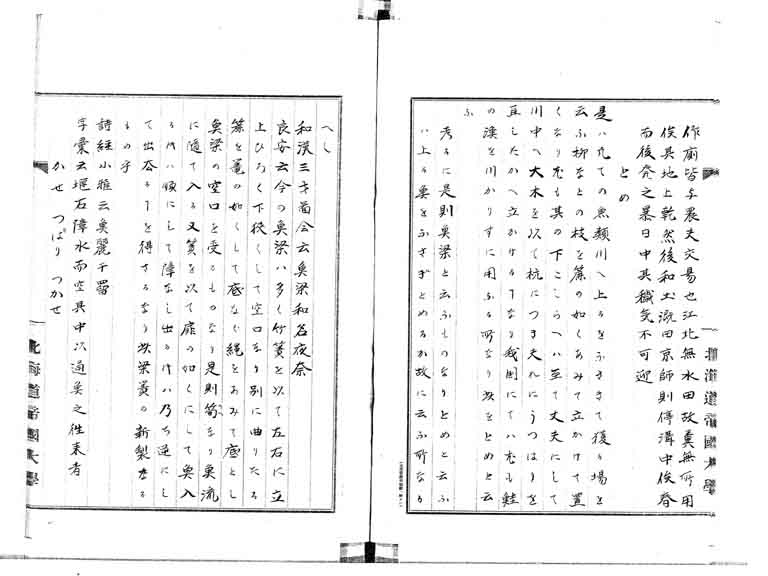 作廁皆与農夫交易也江北無水田故糞無所用
俟其地上乾然後和土漑田京師則停溝中俟春
而後発之暴日中其穢気不可迎
とめ
是ハ凡ての魚類川へ上るをふさきて獲る場と
云ふ柳なとの枝を簾の如くあみて立かけて置
くなり尤も其の下こしらへハ至て丈夫にして
川中へ大木を以て杭につき夫れにうつはりを
亘したかへ立かけるなり我国にてハ尤も鮭
の漁を川かりすに用ふる所なり此をとめと云
ふ
考るに是則魚梁と云ふものなりとめと云ふ
ハ上る魚をふさぎとめるか故に云ふ所なり
へし
和漢三才図会云魚梁和名夜奈
良安云今の魚梁ハ多く竹簀を以て左右に立
上ひろく下狭くして空口を別に曲りたる
簾を篭の如くして底なく縄をあみて底とし
魚梁の空口を受るものなり是則笱なり魚流
に随て入る又簀を以て扉の如くにして魚入
る時ハ傾にして障なし出る時ハ乃ち逆にし
て出る事を得さるなり此梁簀の新製なる
もの乎
詩経小雅云魚麗于罶
字彙云堰石障水而空其中以通魚之往来者
かせ つぱり つかせ
北海道帝國大學
北海道帝國大學